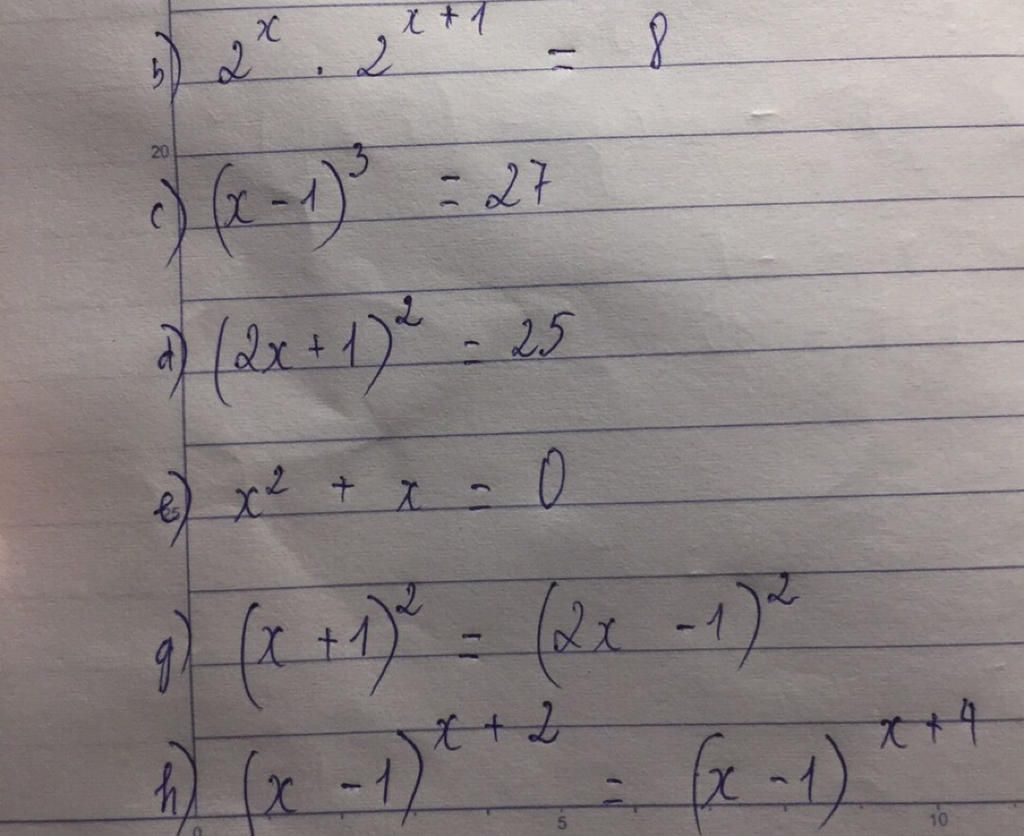 b) 2^x . 2^{x+1} = 8
20
c) (x - 1)^3 = 27
d) (2x + 1)^2 = 25
e) x^2 + x = 0
g) (x + 1)^2 = (2x - 1)^2
h) (x - 1)^{x + 2} = (x - 1)^{x + 4}
0 5 10